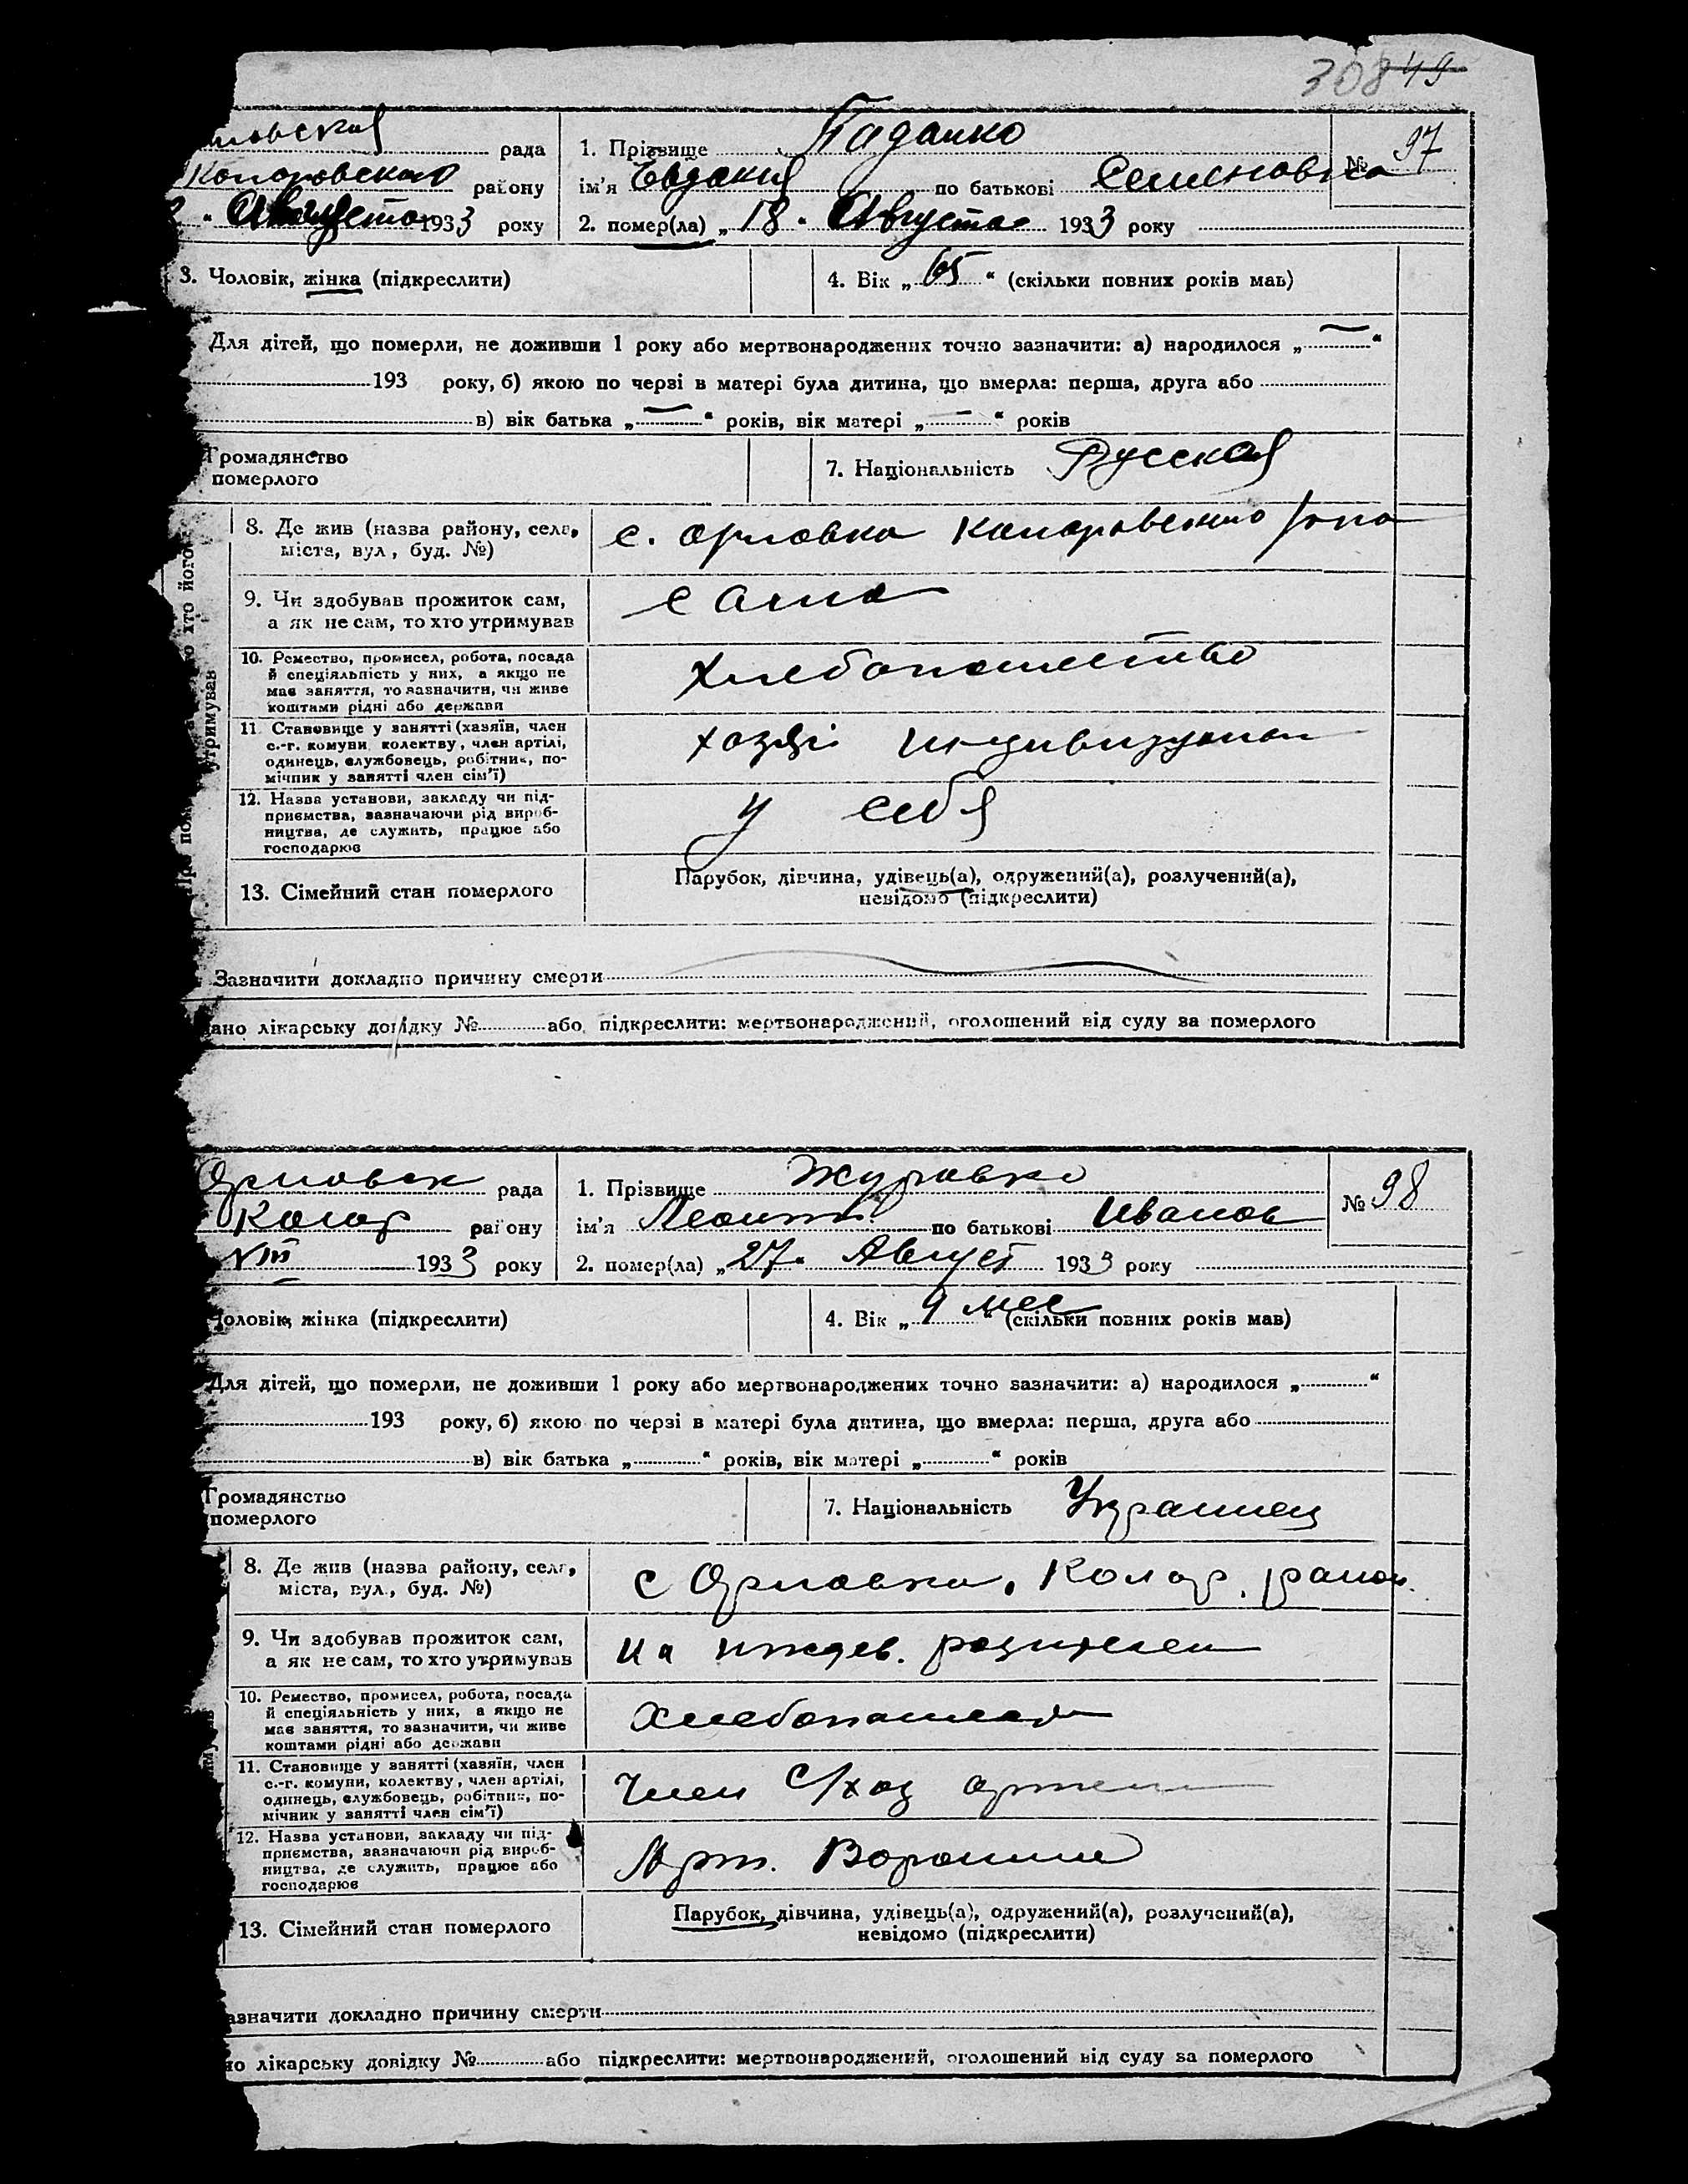 308 49
рада
1. Прізвище
№ 97
району
ім'я Евдокия по батькові Семеновна
Августа 1933 року
2. помер(ла) „ 18 " Августа 1933 року
3. Чоловік, жінка (підкреслити)
4. Вік „ 65 “ (скільки повних років маь)
Для дітей, що померли, не доживши 1 року або мертвонароджених точно зазначити: а) народилося „ — “
193 року, б) якою по черзі в матері була дитина, що вмерла: перша, друга або
в) вік батька „ — “ років, вік матері „ — “ років
Громадянство
померлого
7. Національність Русская
8. Де жив (назва району, села,
міста, вул., буд. №)
с. Орловка
9. Чи здобував прожиток сам,
а як не сам, то хто утримував
сама
10. Ремество, промисел, робота, посада
й спеціяльність у них, а якщо не
має заняття, то зазначити, чи живе
коштами рідні або держави
Хлебопашество
11. Становище у занятті (хазяїн, член
с.-г. комуни, колектву, член артілі,
одинець, службовець, робітник, по-
мічник у занятті член сім'ї)
12. Назва установи, закладу чи під-
приємства, зазначаючи рід вироб-
ництва, де служить, працює або
господарює
у себя
13. Сімейний стан померлого
Парубок, дівчина, удівець(а), одружений(а), розлучений(а),
невідомо (підкреслити)
Зазначити докладно причину смерти
ано лікарську довідку № або підкреслити: мертвонароджений, оголошений від суду за померлого
Орловск рада
1. Прізвище Журавко
№ 98
Колар району
ім'я по батькові Иванов
VIII 1933 року
2. помер(ла) „ 27 " Август 1933 року
Чоловік, жінка (підкреслити)
4. Вік „ 9 мес “ (скільки повних років мав)
Для дітей, що померли, не доживши 1 року або мертвонароджених точно зазначити: а) народилося „ “
193 року, б) якою по черзі в матері була дитина, що вмерла: перша, друга або
в) вік батька „ “ років, вік матері „ “ років
Громадянство
померлого
7. Національність Украинец
8. Де жив (назва району, села,
міста, вул., буд. №)
с Орловка, Колар. район.
9. Чи здобував прожиток сам,
а як не сам, то хто утримував
на иждев. родителей
10. Ремество, промисел, робота, посада
й спеціяльність у них, а якщо не
має заняття, то зазначити, чи живе
коштами рідні або держави
11. Становище у занятті (хазяїн, член
с.-г. комуни, колектву, член артілі,
одинець, службовець, робітник, по-
мічник у занятті член сім'ї)
Член с/хоз артели
12. Назва установи, закладу чи під-
приємства, зазначаючи рід вироб-
ництва, де служить, працює або
господарює
Арт.
13. Сімейний стан померлого
Парубок, дівчина, удівець(а), одружений(а), розлучений(а),
невідомо (підкреслити)
азначити докладно причину смерти
но лікарську довідку № або підкреслити: мертвонароджений, оголошений від суду за померлого